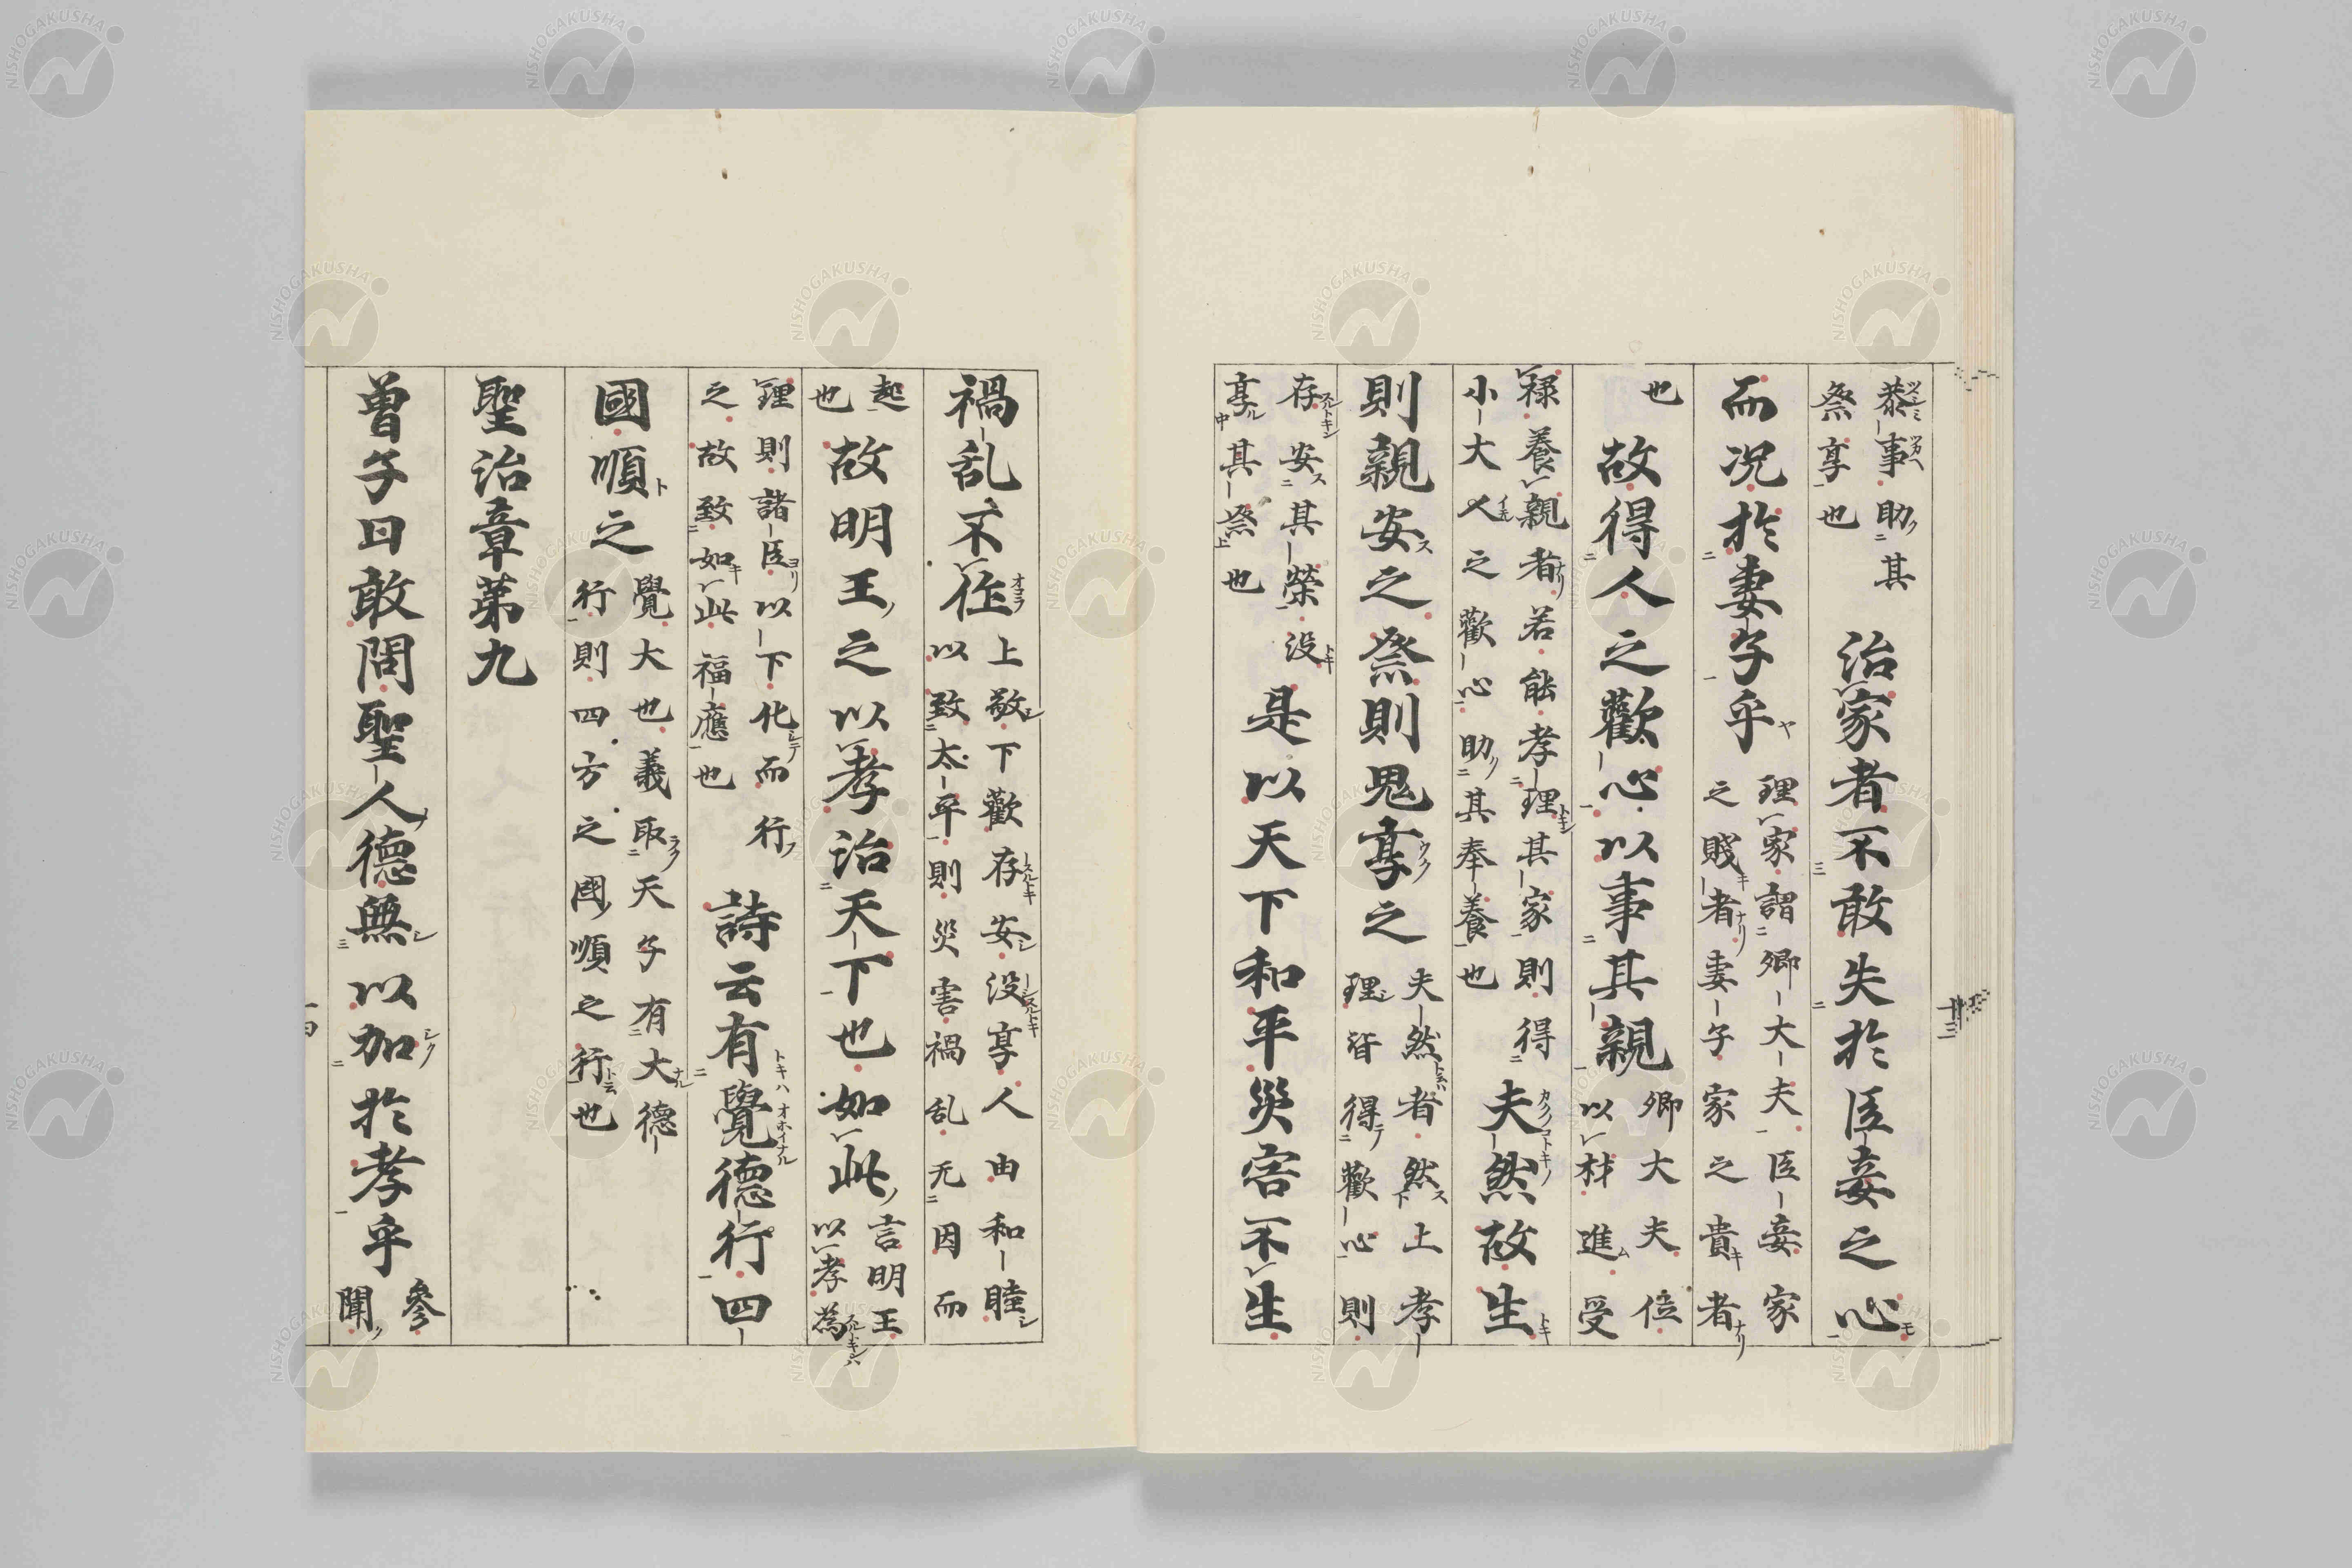 恭事助其
祭享也
治家者不敢失於臣妾之心
而况於妻子乎
理家謂卿大夫臣妾家
之賤者妻子家之貴者
也
故得人之歡心以事其親
卿大夫位
以材進受
禄養親者若能孝理其家則得
小大之歡心助其奉養也
夫然故生
則親安之祭則鬼享之
夫然者然上孝
理皆得歡心則
存安其榮没
享其祭也
是以天下和平災害不生
禍乱不作
上敬下歡存安没享人由和睦
以致太平則災害禍乱无因而
起
也
故明王之以孝治天下也如此
言明王
以孝為
理則諸臣以下化而行
之故致如此福應也
詩云有覺德行四
國順之
覺大也義取天子有大德
行則四方之國順之行也
聖治章第九
曽子曰敢問聖人德無以加於孝乎
參
聞
十三
NISHOGAKUSHA